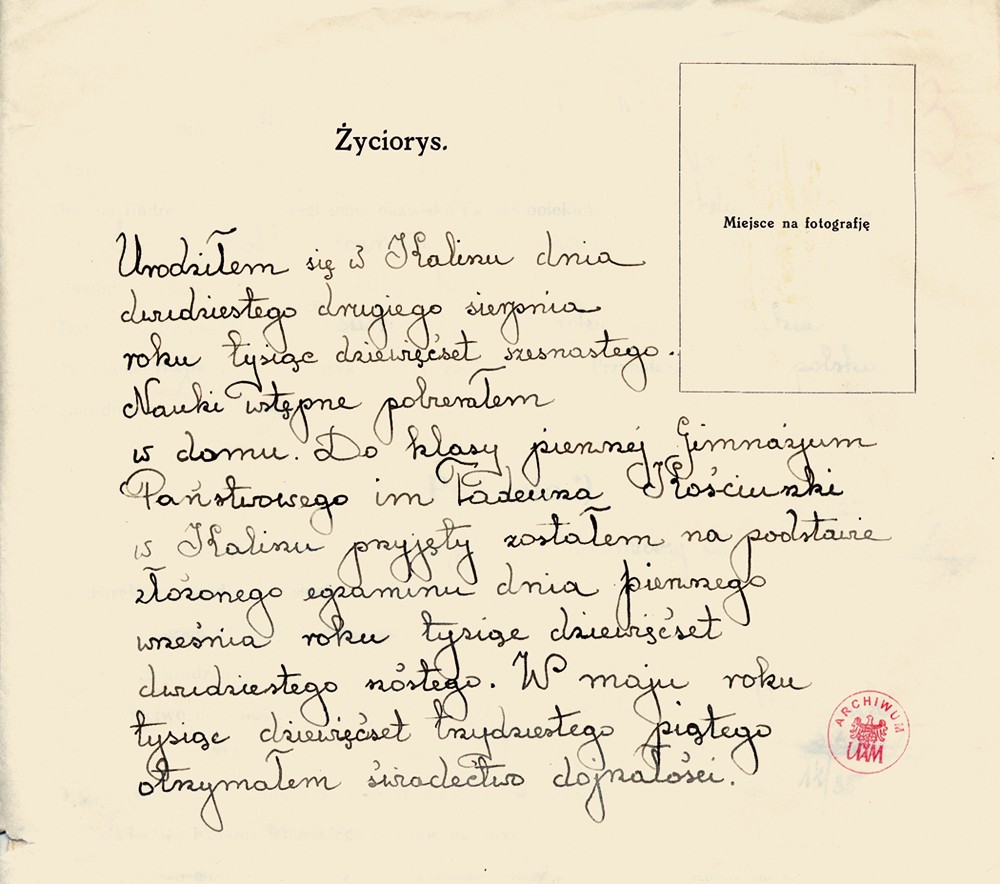 Życiorys.
Miejsce na fotografję
Urodziłem się w Kaliszu dnia
dwudziestego drugiego sierpnia
roku tysiąc dziewięćset szesnastego.
Nauki wstępne pobierałem
w domu. Do klasy pierwszej Gimnazjum
Państwowego im Tadeusza Kościuszki
w Kaliszu przyjęty zostałem na podstawie
złożonego egzaminu dnia pierwszego
września roku tysiąc dziewięćset
dwudziestego szóstego. W maju roku
tysiąc dziewięćset trzydziestego piątego
otrzymałem świadectwo dojrzałości.
ARCHIWUM
UAM